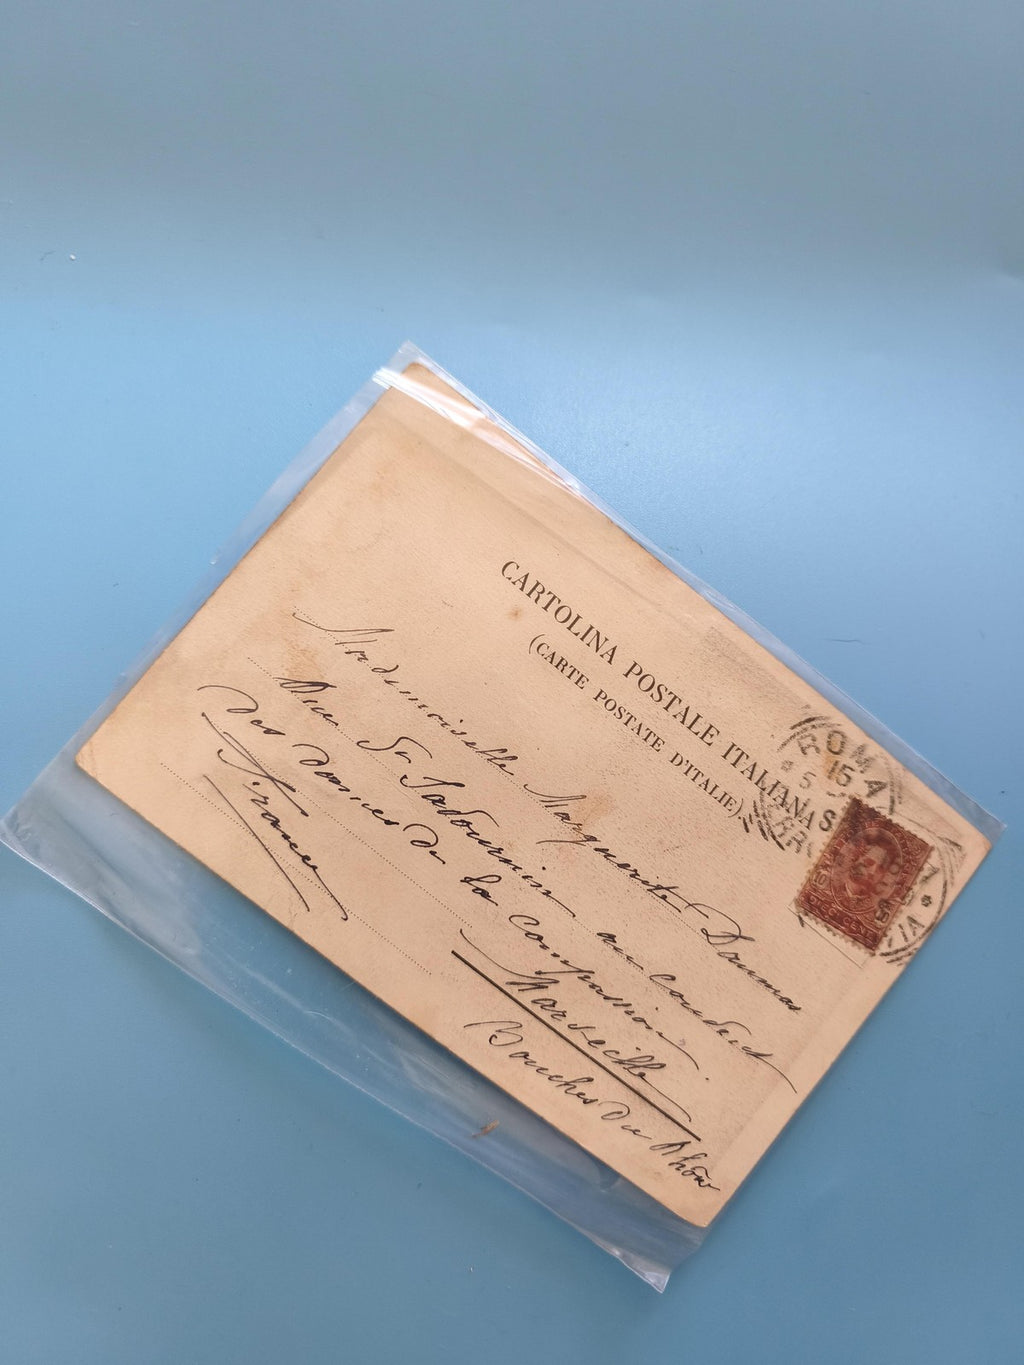 CARTOLINA POSTALE ITALIANA
(CARTE POSTALE D'ITALIE)
ROMA
15
5
Mademoiselle Marguerite Daumas
Rue St Savournin au couvent
des Dames de la compassion
Marseille
Bouches du Rhône
France